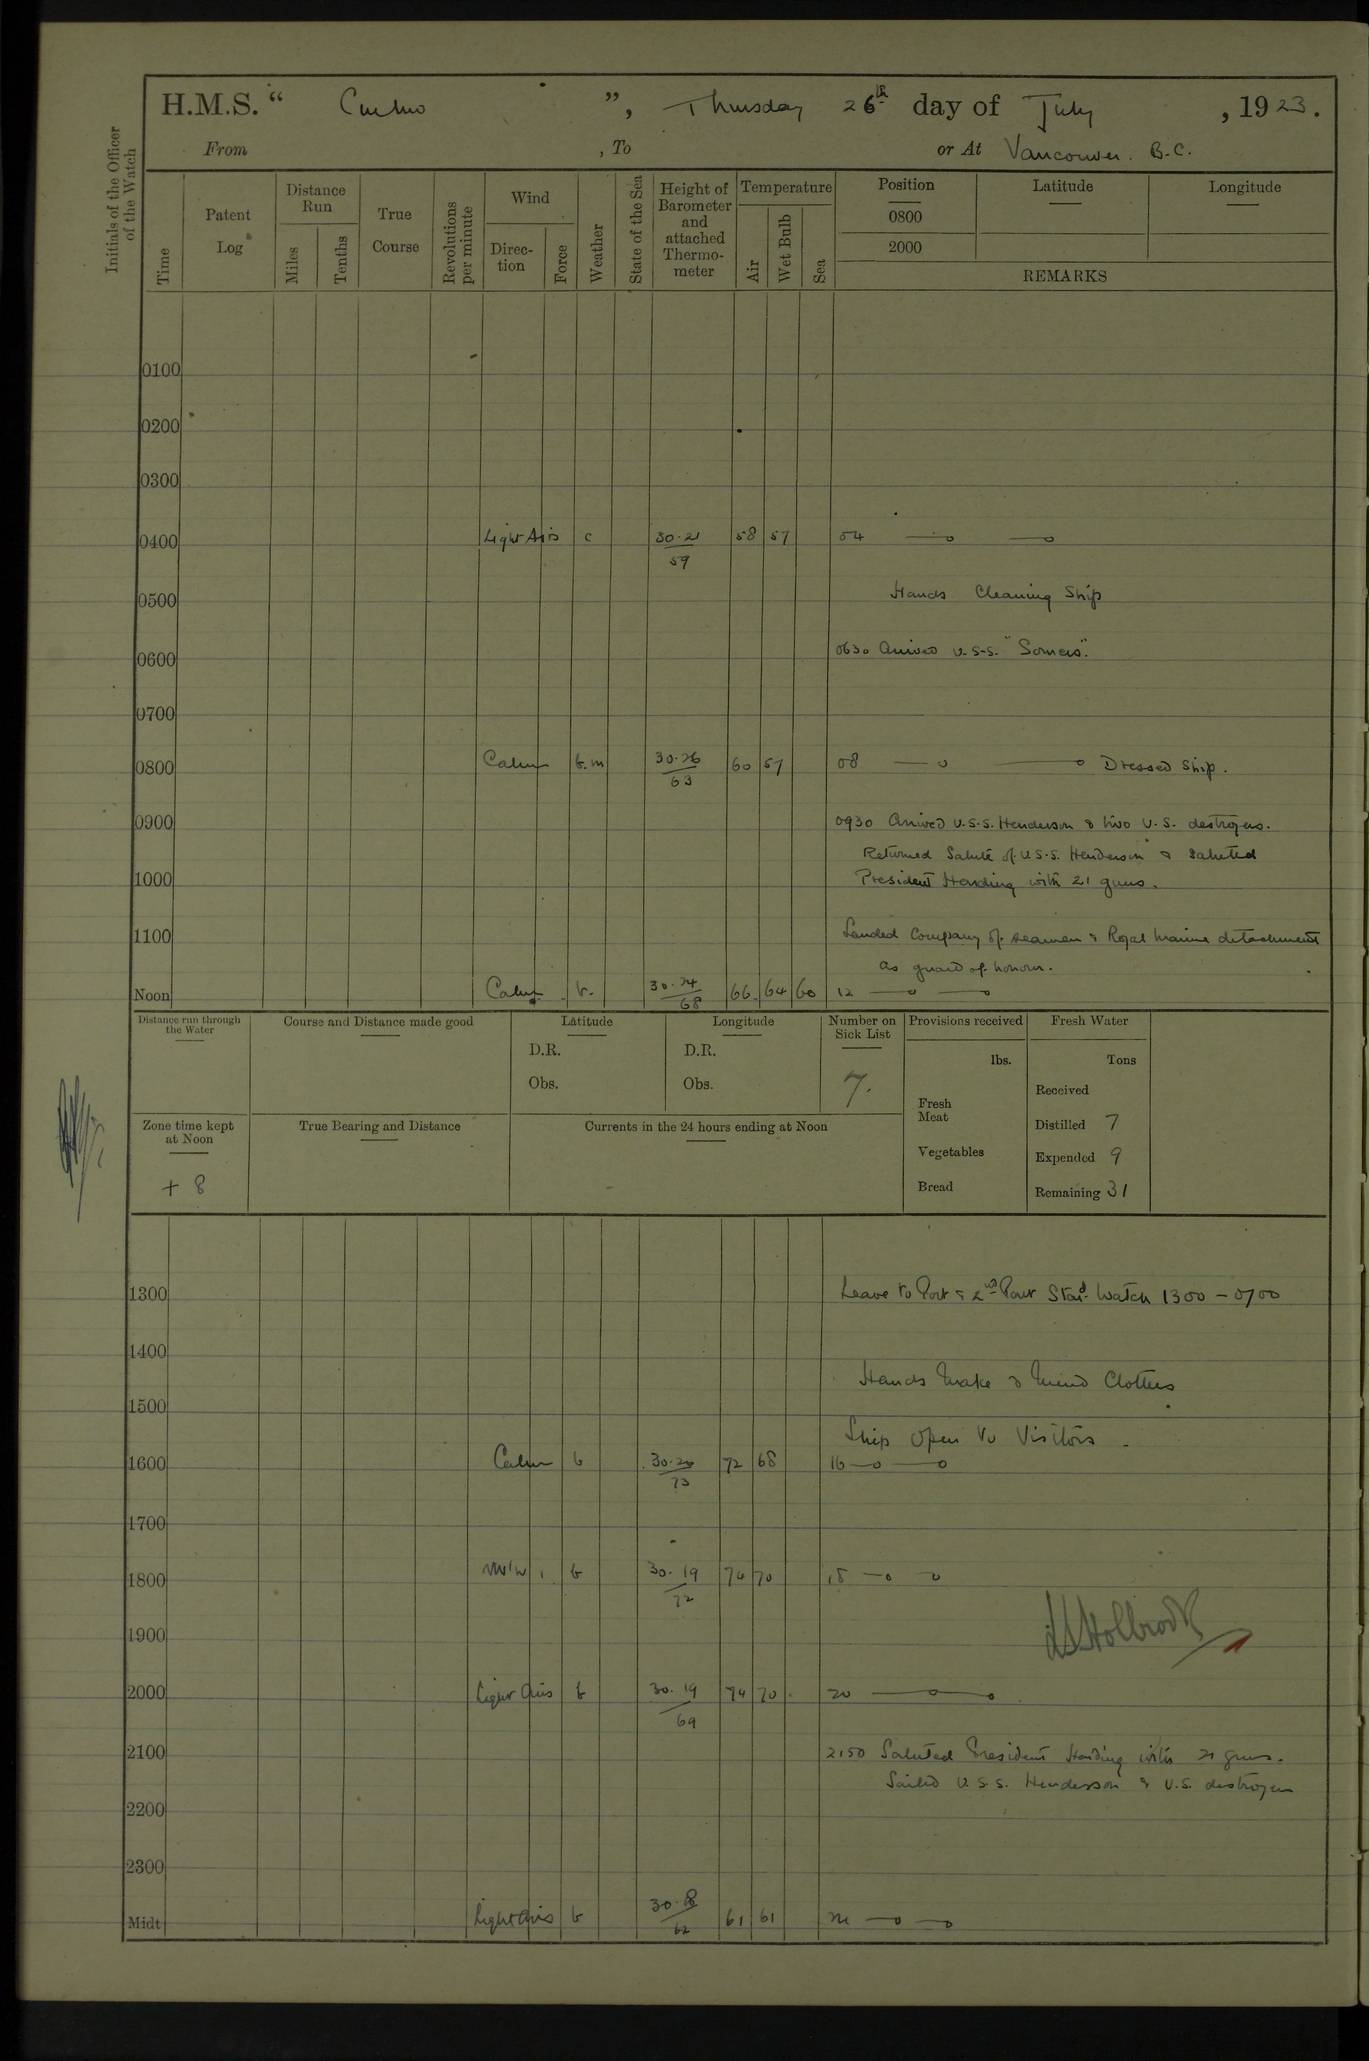 H.M.S. “ Curlew ”, Thursday 26th day of July, 1923.
From , To or At Vancouver. B.C.
Initials of the Officer of the Watch
Time
Patent Log
Distance Run
Miles
Tenths
True Course
Revolutions per minute
Wind
Direc-tion
Force
Weather
State of the Sea
Height of Barometer and attached Thermo-meter
Temperature
Air
Wet Bulb
Sea
Position Latitude Longitude
0800
2000
REMARKS
0100
0200
0300
0400 Light Airs c 30.21/59 58 57 04
0500 Hands Cleaning Ship
0600 0630 Arrived U.S.S. "Somers".
0700
0800 Calm b.m 30.26/63 60 57 08 Dressed Ship.
0900 0930 Arrived U.S.S. Henderson & two U.S. destroyers.
Returned Salute of U.S.S. Henderson & saluted
1000 President Harding with 21 guns.
1100 Landed Company of seamen & Royal Marine detachment
as guard of honour.
Noon Calm b. 30.24/68 66 64 60 12
Distance run through the Water
Course and Distance made good
Latitude
D.R.
Obs.
Longitude
D.R.
Obs.
Number on Sick List
7.
Provisions received
lbs.
Fresh Meat
Vegetables
Bread
Fresh Water
Tons
Received
Distilled 7
Expended 9
Remaining 31
Zone time kept at Noon
+ 8
True Bearing and Distance
Currents in the 24 hours ending at Noon
1300 Leave to Port & 2nd Part Stard. Watch 1300 – 0700
1400
Hands Make & Mend Clothes
1500
Ship Open to Visitors
1600 Calm b 30.20/73 72 68 16
1700
1800 NW'W 1 b 30.19/72 74 70 18
1900
2000 Light Airs b 30.19/69 74 70 20
2100 2150 Saluted President Harding with 21 guns.
Sailed U.S.S. Henderson & U.S. destroyers
2200
2300
Midt Light Airs b 30.18/62 61 61